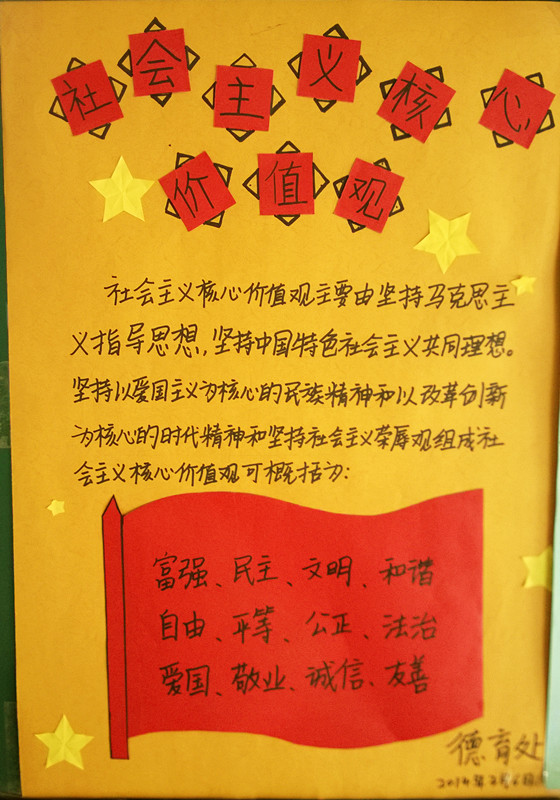 社会主义核心
价值观
社会主义核心价值观主要由坚持马克思主
义指导思想,坚持中国特色社会主义共同理想。
坚持以爱国主义为核心的民族精神和以改革创新
为核心的时代精神和坚持社会主义荣辱观组成社
会主义核心价值观可概括为:
富强、民主、文明、和谐
自由、平等、公正、法治
爱国、敬业、诚信、友善
德育处